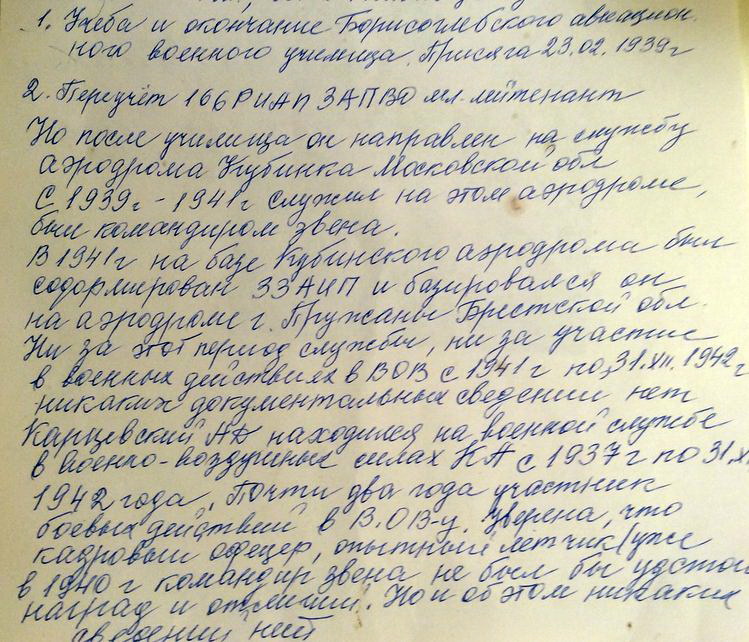 1. Учеба и окончание Борисоглебского авиацион-
ного военного училища. Присяга 23.02.1939г
2. Переучёт 166 РИАП ЗАПВО мл. лейтенант
Но после училища он направлен на службу
аэродрома Кубинка Московской обл
С 1939г - 1941г служил на этом аэродроме,
был командиром звена.
В 1941г на базе Кубинского аэродрома был
сформирован 33 АИП и базировался он
на аэродроме г. Пружаны Брестской обл.
Ни за этот период службы, ни за участие
в военных действиях в ВОВ с 1941г по 31.XII.1942г
никаких документальных сведений нет
Карцевский находился на военной службе
в военно-воздушных силах КА с 1937г по 31.X
1942 года. Почти два года участник
боевых действий в В.ОВ-у. Уверена, что
кадровый офицер, опытный летчик (уже
в 1940г командир звена не был бы удостои
наград и отличий. Но и об этом никаких
сведений нет